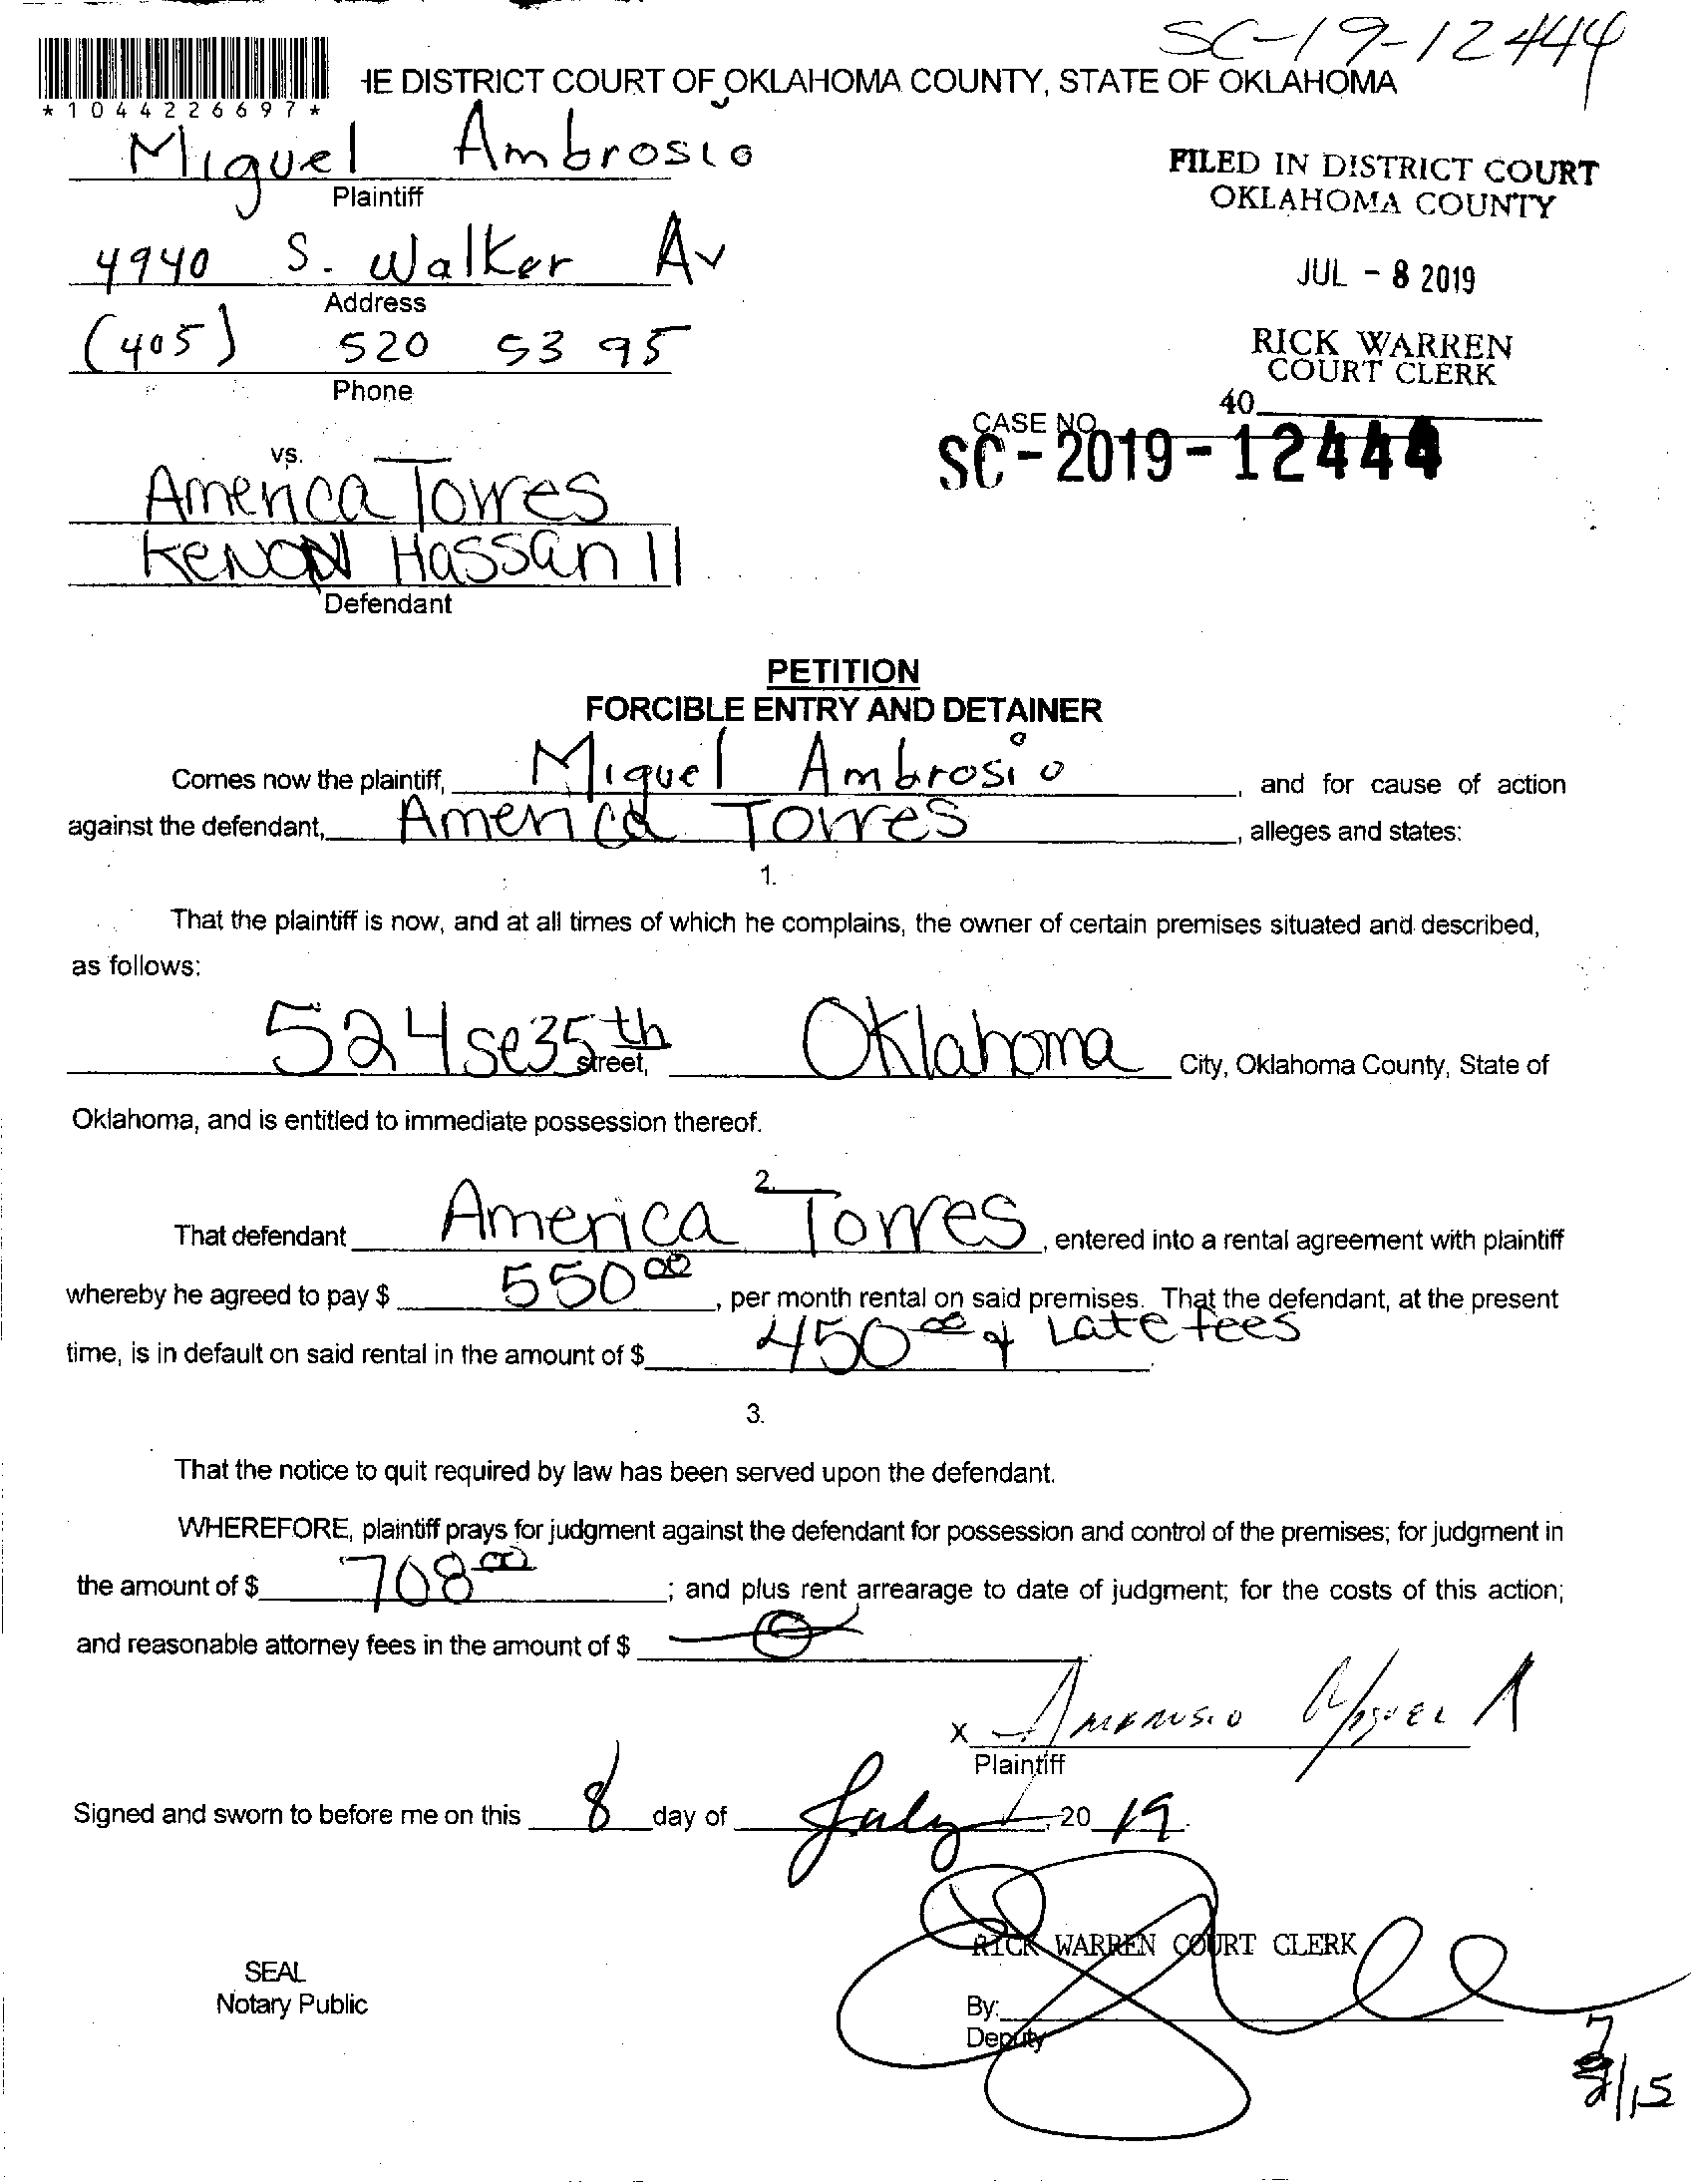 SC-19-12444
*1044226697*
HE DISTRICT COURT OF OKLAHOMA COUNTY, STATE OF OKLAHOMA
Miguel Ambrosio
Plaintiff
FILED IN DISTRICT COURT
OKLAHOMA COUNTY
4940 S. Walker Av
Address
JUL - 8 2019
(405) 520 5395
Phone
RICK WARREN
COURT CLERK
40
CASE NO.
SC-2019-12444
vs.
America Torres
KENON Hassan II
Defendant
PETITION
FORCIBLE ENTRY AND DETAINER
Comes now the plaintiff, Miguel Ambrosio, and for cause of action
against the defendant, America Torres, alleges and states:
1.
That the plaintiff is now, and at all times of which he complains, the owner of certain premises situated and described,
as follows:
524 se 35th street, Oklahoma City, Oklahoma County, State of
Oklahoma, and is entitled to immediate possession thereof.
2.
That defendant America Torres, entered into a rental agreement with plaintiff
whereby he agreed to pay $ 550 00, per month rental on said premises. That the defendant, at the present
time, is in default on said rental in the amount of $ 450 00 & Late fees.
3.
That the notice to quit required by law has been served upon the defendant.
WHEREFORE, plaintiff prays for judgment against the defendant for possession and control of the premises; for judgment in
the amount of $ 708 00; and plus rent arrearage to date of judgment; for the costs of this action;
and reasonable attorney fees in the amount of $ 0
X Ambrosio Miguel A
Plaintiff
Signed and sworn to before me on this 8 day of July, 20 19.
RICK WARREN COURT CLERK
SEAL
Notary Public
By:
Deputy
7/15